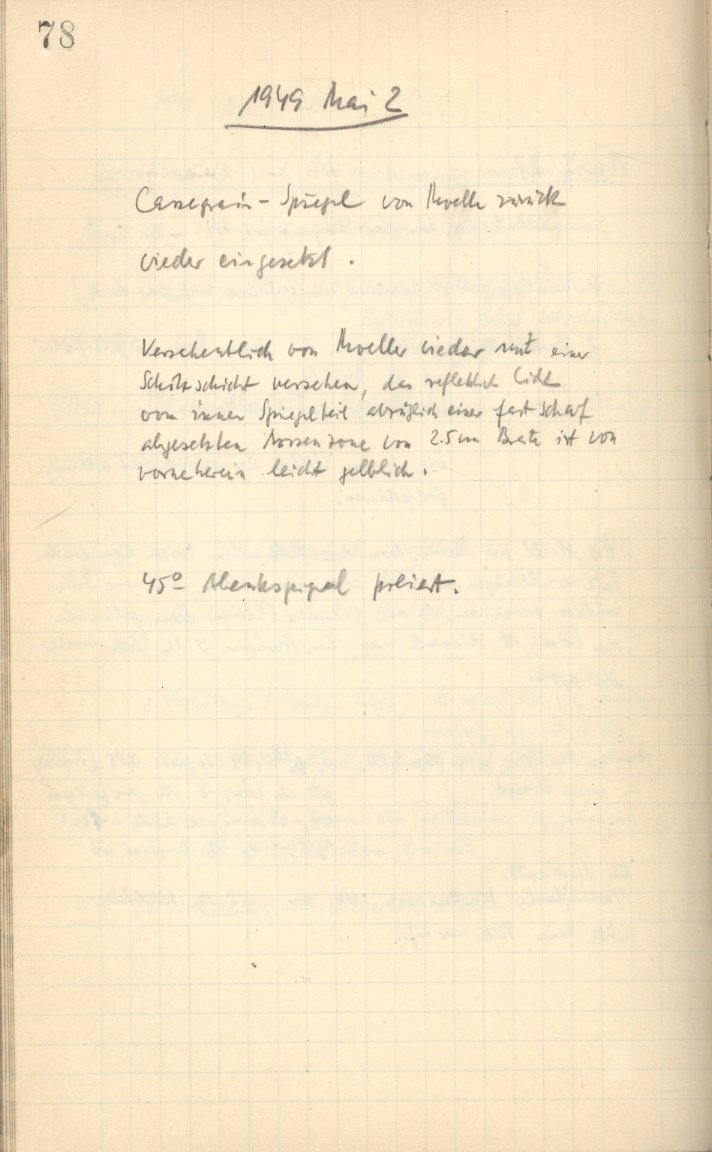 78
1949 Mai 2
Cassegrain-Spiegel von Moeller zurück
wieder eingesetzt.
Versehentlich von Moeller wieder mit einer
Schutzschicht versehen, das reflektierte Licht
vom inner Spiegelteil abzüglich einer fast scharf
abgesetzten Aussenzone von 2.5 cm Breite ist von
vorneherein leicht gelblich.
45° Ablenkspiegel poliert.